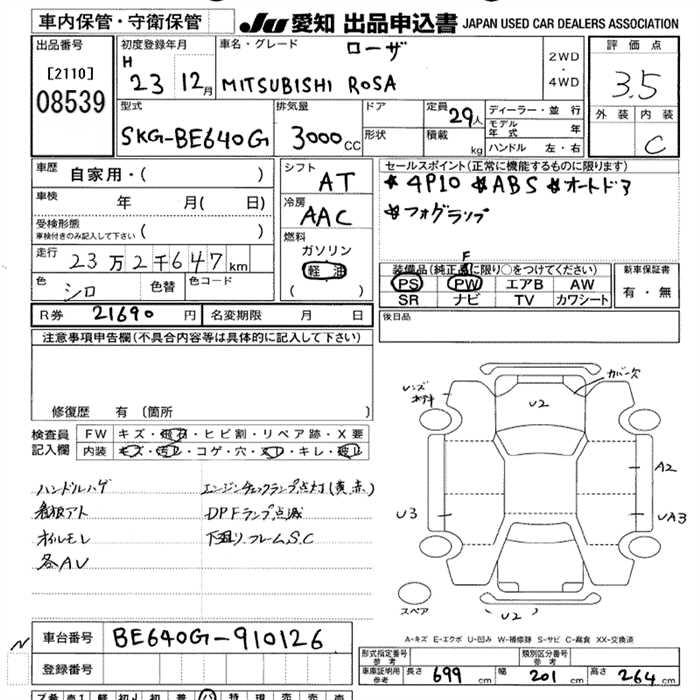 車内保管・守衛保管 JU 愛知 出品申込書 JAPAN USED CAR DEALERS ASSOCIATION
出品番号 [2110] 08539
初度登録年月 H 23 12月
車名・グレード ローザ
MITSUBISHI ROSA
2WD・4WD
評価点 3.5
外装 内装 C
型式 SKG-BE640G
排気量 3000CC
ドア 形状
定員 29人
積載 kg
ディーラー・並行
モデル年式 年
ハンドル 左・右
車歴 自家用・( )
車検 年 月( 日)
受検形態
車検付きのみ記入して下さい ( )
走行 23万2千647km
色 シロ 色替 色コード
シフト AT
冷房 AAC
燃料
ガソリン
軽油
( )
セールスポイント(正常に機能するものに限ります)
*4P10 *ABS *オートドア
*フォグランプ
F
装備品(純正品に限り○をつけてください)
PS PW エアB AW
SR ナビ TV カワシート
新車保証書
有・無
R券 21690円 名変期限 月 日
後日品
注意事項申告欄(不具合内容等は具体的に記入して下さい)
修復歴 有(箇所 )
検査員記入欄
FW キズ・飛石・ヒビ割・リペア跡・X要
内装 キズ・汚レ・コゲ・穴・スレ・キレ・破レ
ハンドルハゲ エンジンチェックランプ点灯(黄,赤)
看板アト DPFランプ点滅
オイルモレ 下廻り,フレームS.C
各AU
レンズ カバー欠
U2
A2
U3 UA3
スペア U2
A-キズ E-エクボ U-凹み W-補修跡 S-サビ C-腐食 XX-交換済
N 車台番号 BE640G-910126
登録番号
形式指定番号 参考 類別区分番号 参考
車庫証明用 参考 長さ 699cm 幅 201cm 高さ 264cm